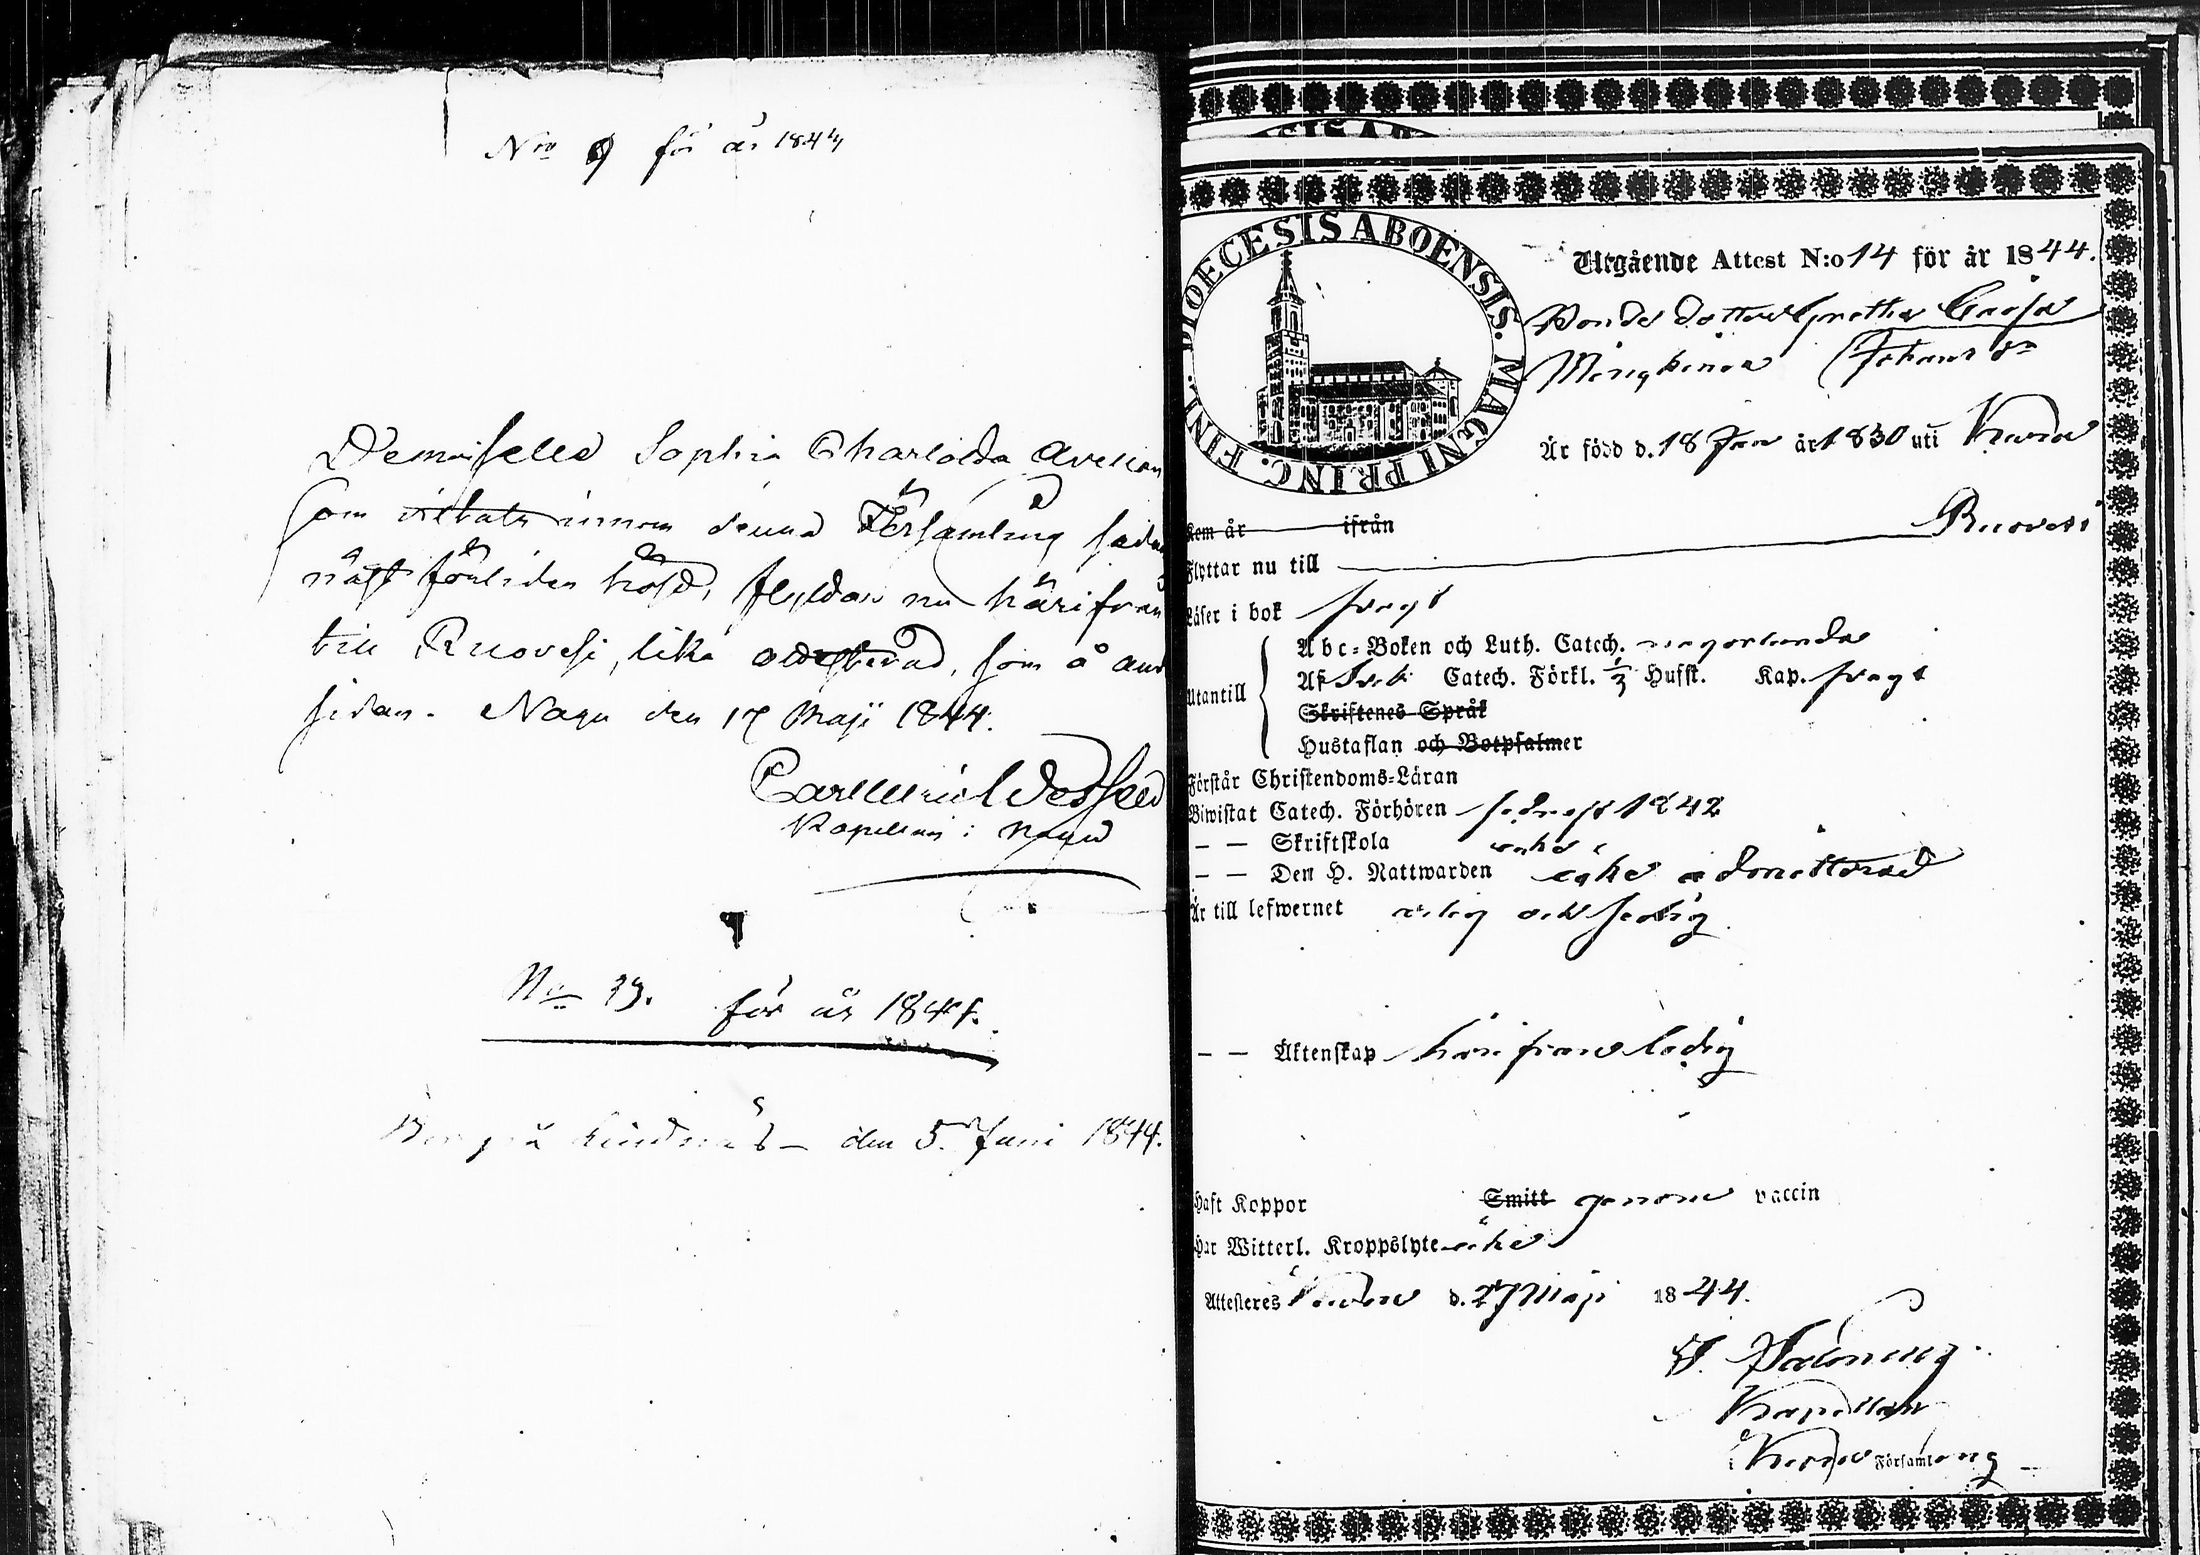 Nro 9 för år 1844
Demoiselle Sophia Charlotta Avellan
som vistats innom denna Församling sedan
näst förliden höst, flyttar nu härifrån
till Ruovesi, lika attesterad, som å andra
sidan. Nagu den 17 Maji 1844.
Carl Ulric
Kapellan i Nagu
No 33. för år 1844.
den 5. Juni 1844.
DIOECESIS ABOENSIS. MAGNI PRINC. FINL.
Utgående Attest N:o 14 för år 1844.
Bonde dottren Gretha Caisa
Johans dr
Är född d. 18 Jan år 1830 uti Kuru
Kom år ifrån
Ruovesi
Flyttar nu till
Läser i bok svagt
Utantill
Abc-Boken och Luth. Catech. någorlunda
Af Sveb. Catech. Förkl. 1/3 Husst. Kap. svagt
Skriftenes Språk
Hustaflan och Botpsalmer
Förstår Christendoms-Läran
Biwistat Catech. Förhören sednast 1842
— — Skriftskola icke
— — Den H. Nattwarden icke admitterad
Är till lefwernet ärlig och sedig
— — Äktenskap härifrån ledig
Haft Koppor Smitt genom vaccin
Har Witterl. Kroppslyte icke
Attesteres Kuru d. 27 Maji 1844.
Kapellan
Kuru Församling